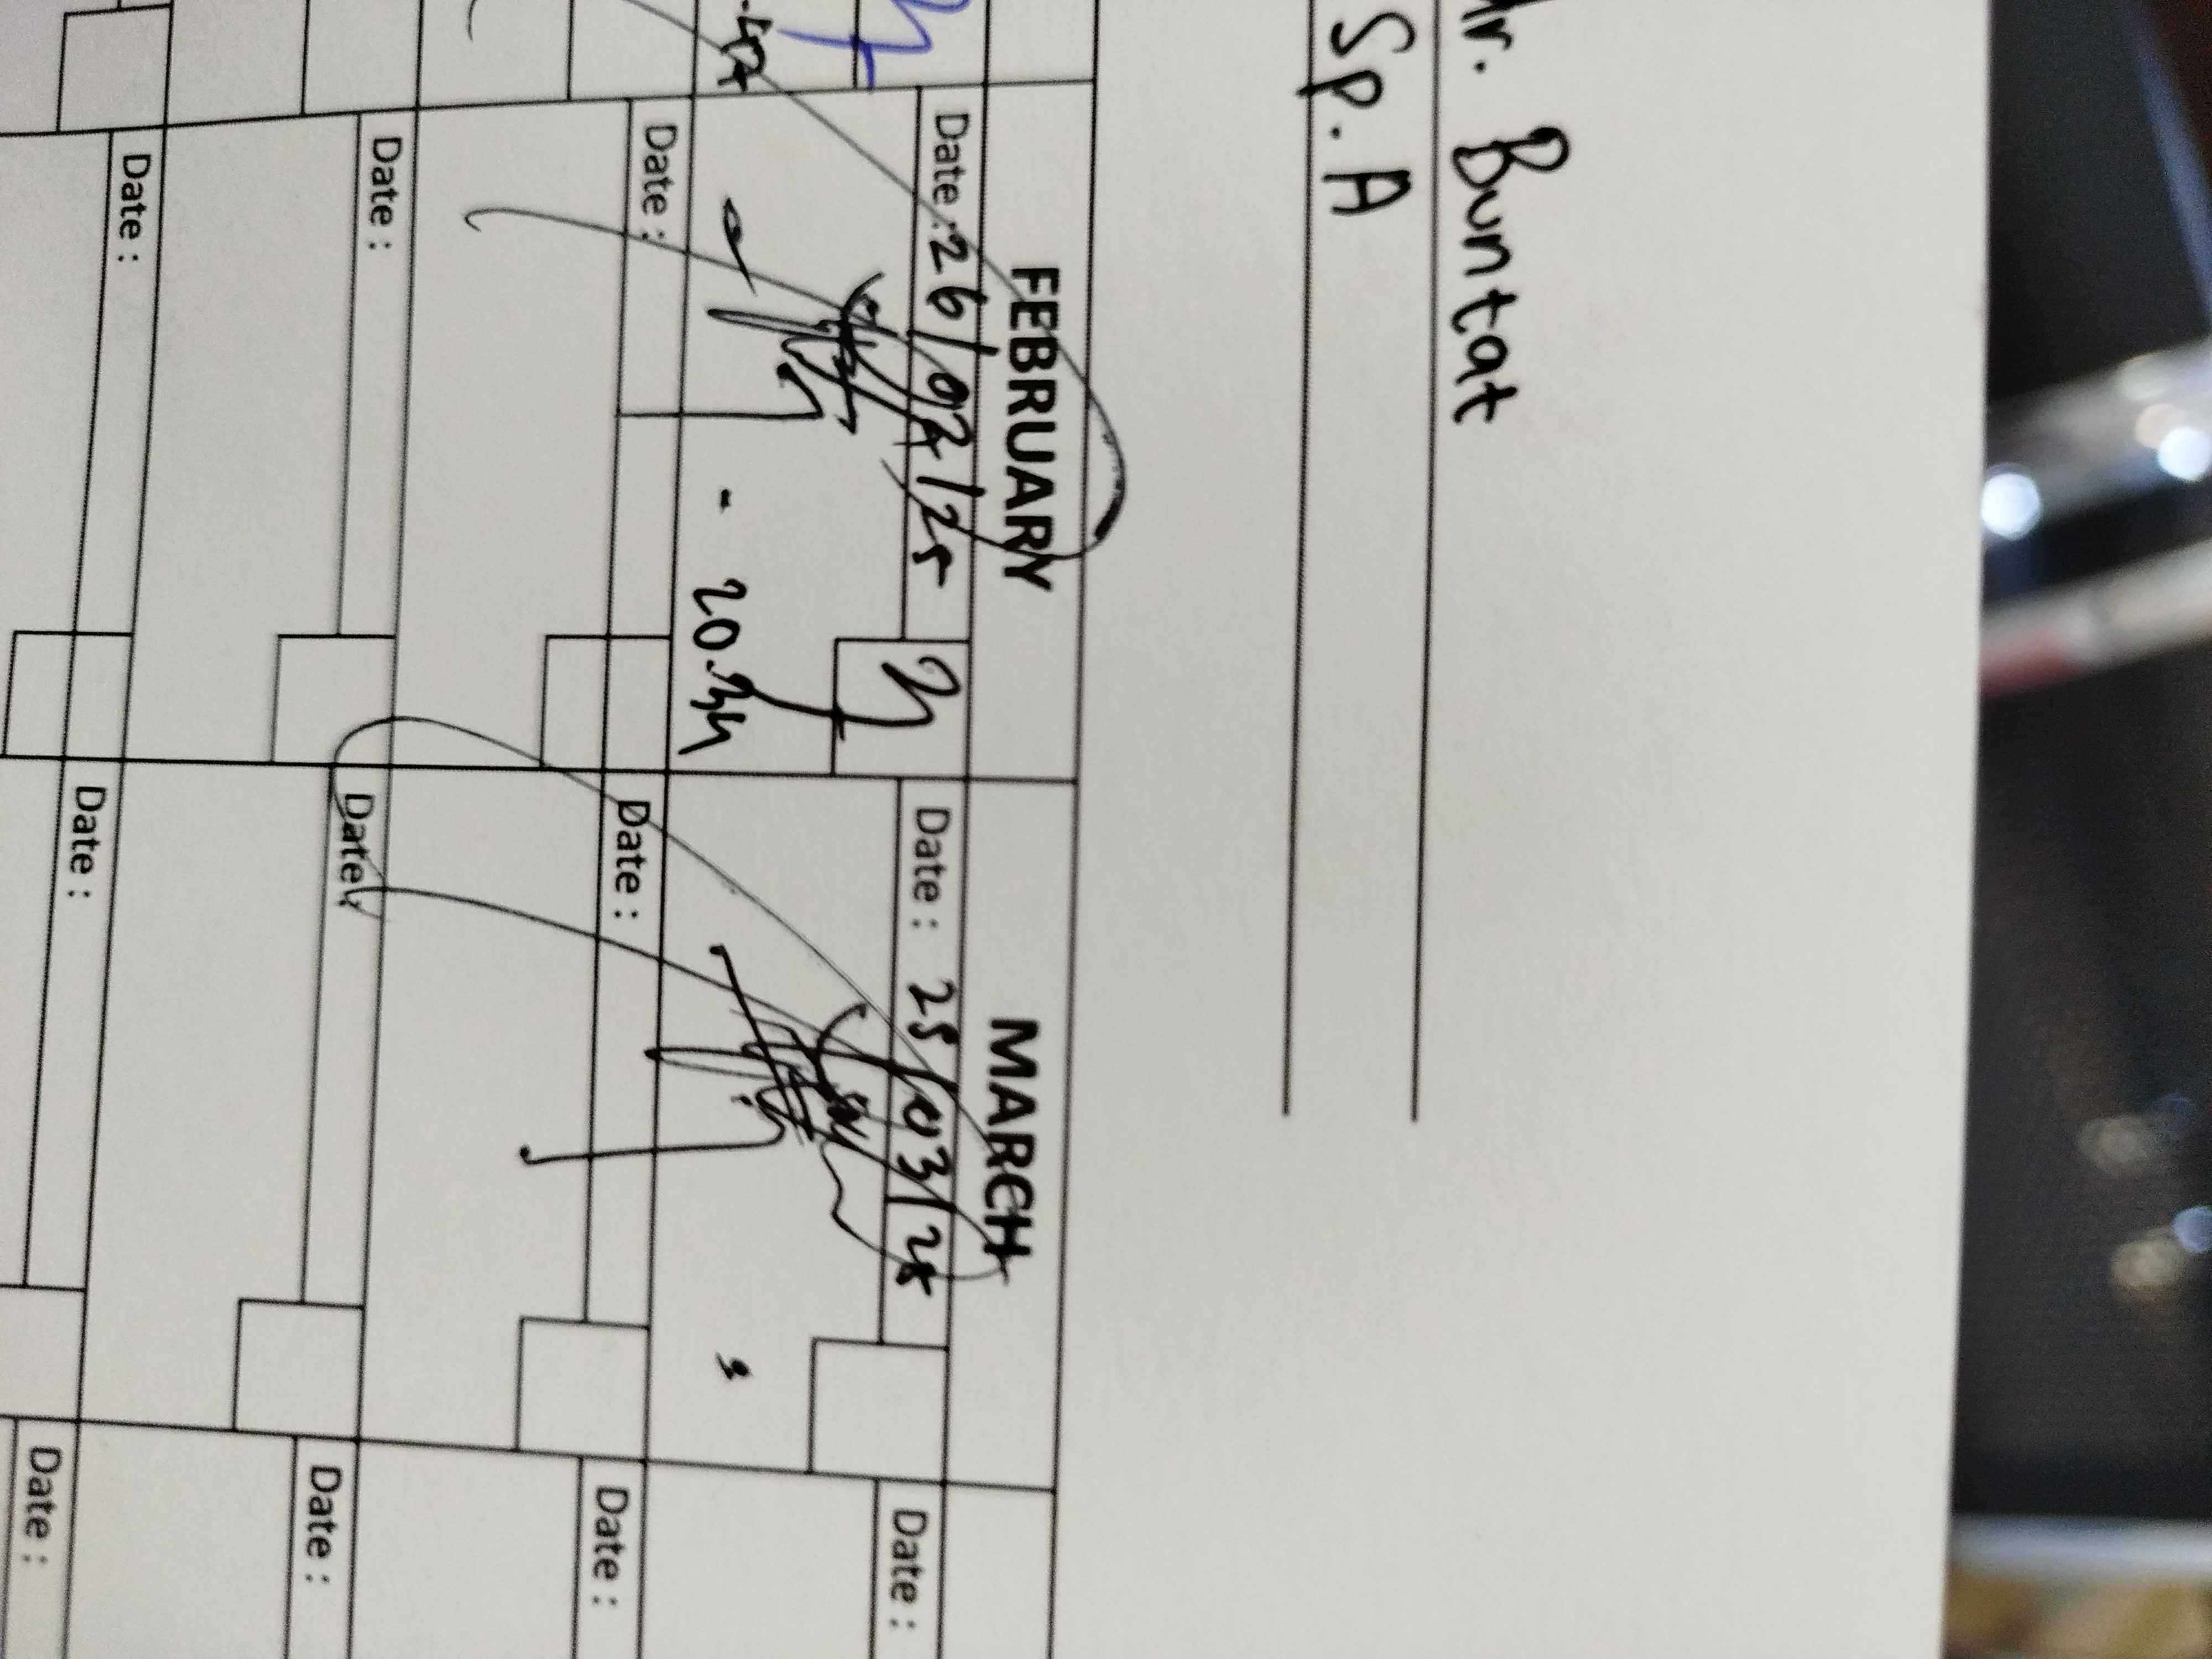 Mr. Buntat
Sp. A
FEBRUARY MARCH
Date : 26/02/25 Date : 25/03/25 Date :
- 20.34
Date : Date : Date :
Date : Date : Date :
Date : Date : Date :